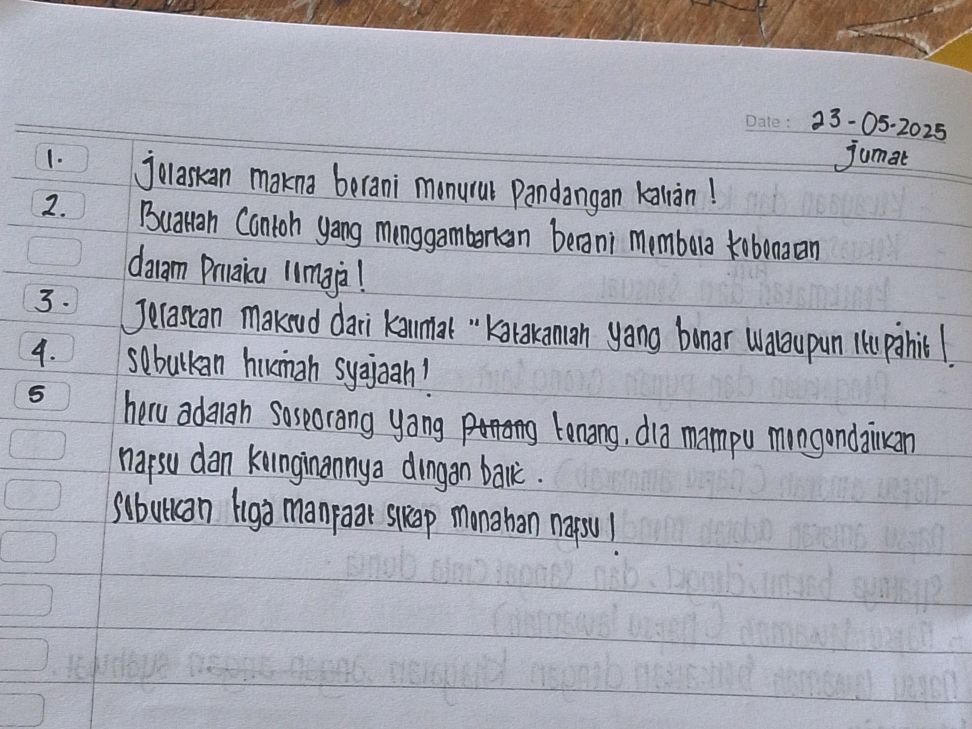 Date : 23-05-2025
jumat
1. jelaskan makna berani menurut Pandangan kalian !
2. Buatlah Contoh yang menggambarkan berani membela kebenaran
dalam Prilaku remaja !
3. Jelaskan maksud dari kalimat "Katakanlah yang benar walaupun itu pahit !
4. sebutkan hikmah syajaah !
5 heru adalah seseorang yang penang tenang. dia mampu mengendalikan
nafsu dan keinginannya dengan baik.
sebutkan tiga manfaat sikap menahan nafsu !